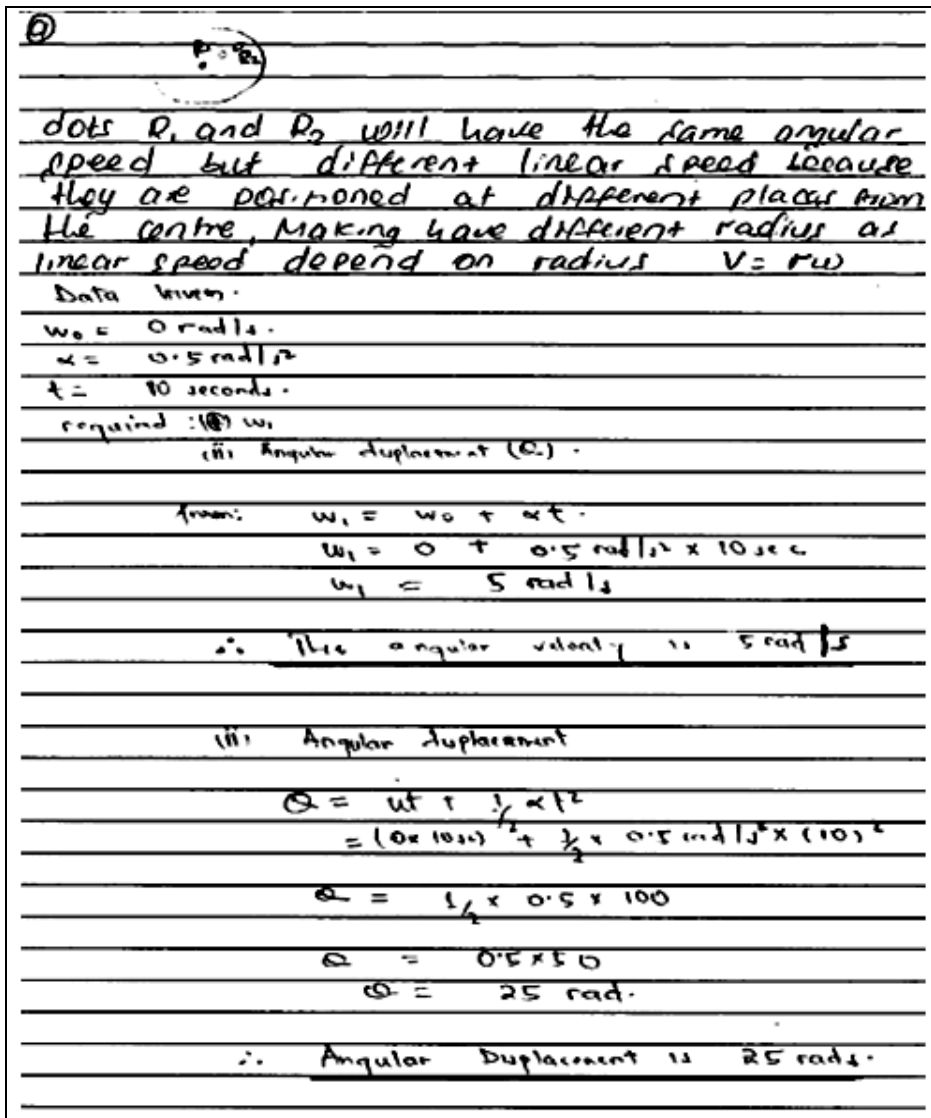 (a)
P₁ P₂
dots P₁ and P₂ will have the same angular
speed but different linear speed because
they are positioned at different places from
the centre, Making have different radius as
linear speed depend on radius V = rω
Data given.
w₀ = 0 rad/s.
α = 0.5 rad/s²
t = 10 seconds.
required : (i) w₁
(ii) Angular displacement (θ).
from: w₁ = w₀ + αt.
w₁ = 0 + 0.5 rad/s² x 10 sec
w₁ = 5 rad/s
∴ The angular velocity is 5 rad/s
(ii) Angular displacement
θ = ut + 1/2 αt²
= (0x 10s) + 1/2 x 0.5 rad/s² x (10)²
θ = 1/2 x 0.5 x 100
θ = 0.5 x 50
θ = 25 rad.
∴ Angular Displacement is 25 rads.